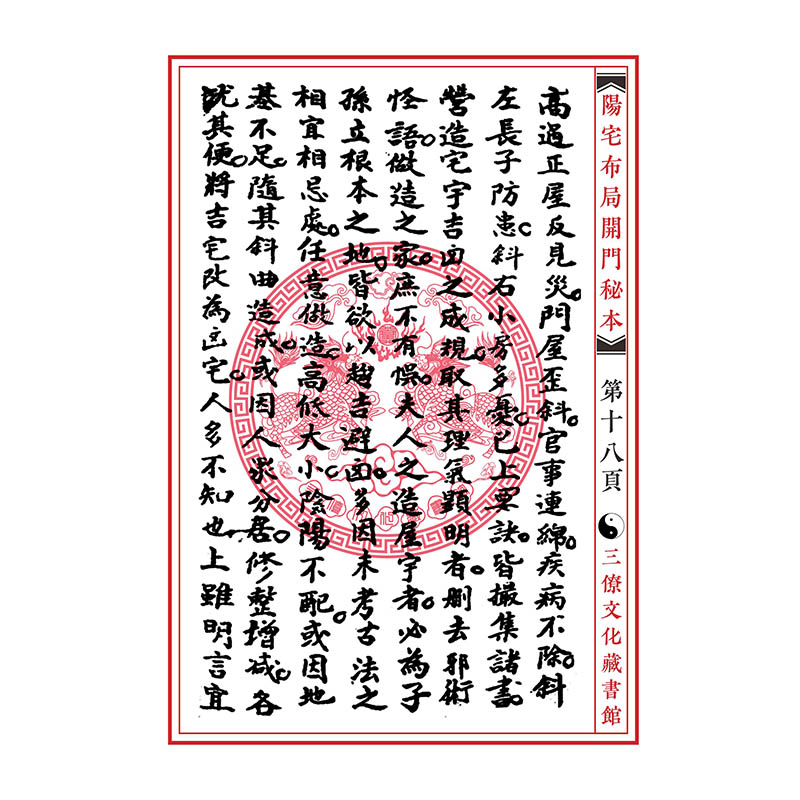 陽宅布局開門秘本 第十八頁 三僚文化藏書館
高過正屋反見災。門屋歪斜。官事連綿。疾病不除。斜
左長子防患。斜右小房多憂。已上要訣。皆撮集諸書。
營造宅宇吉凶之成規。取其理氣顕明者。刪去邪術
怪語。做造之家。庶不有悮。夫人之造屋宇者。必為子
孫立根本之地。皆欲以趨吉避凶。多因未考古法之
相宜相忌處。任意做造。高低大小。陰陽不配。或因地
基不足。隨其斜曲造成。或因人衆分居。修整增减。各
其便。將吉宅改為凶宅。人多不知也。上雖明言宜